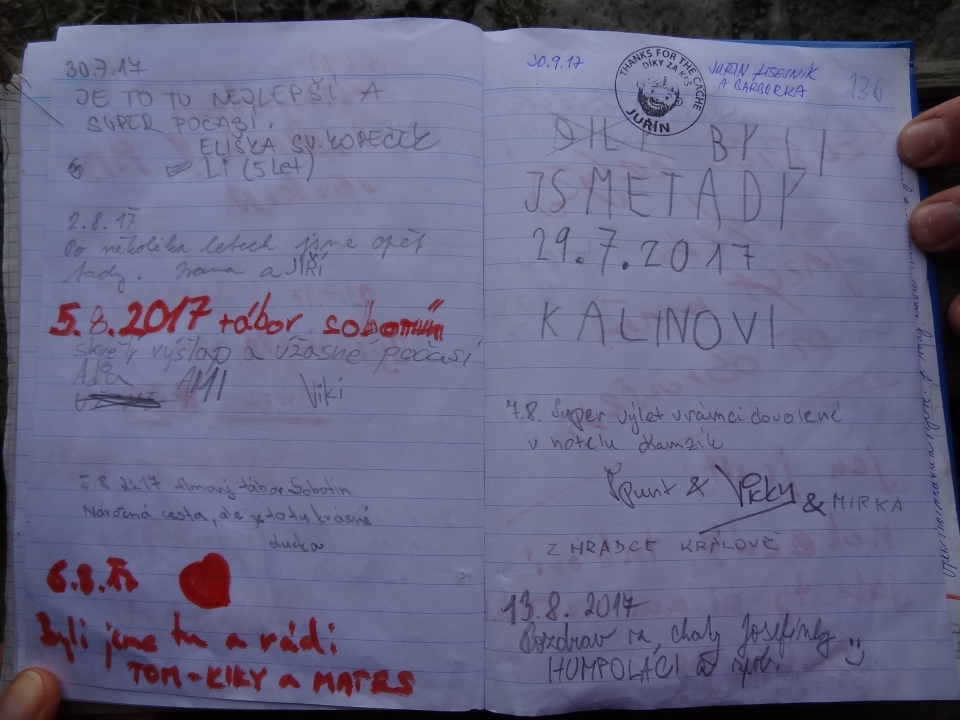 30.7.17
JE TO TU NEJLEPŠÍ A
SUPER POČASÍ.
ELIŠKA SV. KOPEČEK
LI (5 let)
2.8.17
Po několika letech jsme opět
tady. Ivana a JIŘÍ
5.8.2017 tábor sobotín
výšlap a úžasné počasí
Áďa AMI Viki
5.8.2017 filmový tábor Sobotín
Náročná cesta, ale je to tu krásné
Lucka
6.8.17
Byli jsme tu a rádi
TOM - KIKY a MATES
30.9.17
THANKS FOR THE CACHE
DÍKY ZA KEŠ
JUŘÍN
JUŘÍN
A BARBORKA
136
BYLI
JSMETADY
29.7.2017
KALINOVI
7.8. Super výlet v rámci dovolené
v hotelu Kamzík
Špunt & Vicky & MIRKA
Z HRADCE KRÁLOVÉ
13.8.2017
Pozdrav z chaty Josefinky
HUMPOLÁCI a spol.